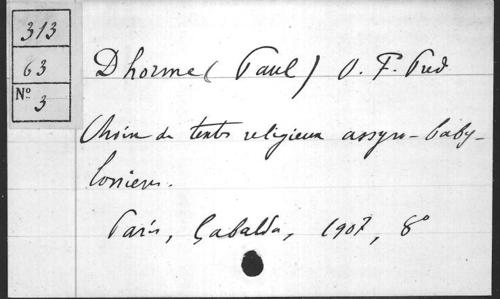 313
63
Nº 3
Dhorme (Paul) O. F. Pred
Choix de textes religieux assyro-baby-
loniens.
Paris, Gabalda, 1907, 8º